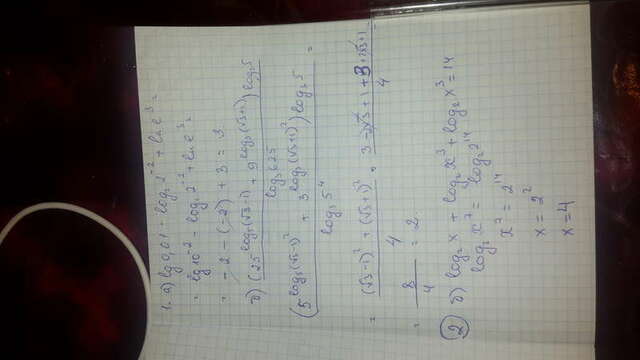 1. а) lg 0,01 - log₂ 2⁻² + ln e³ =
= lg 10⁻² - log₂ 2⁻² + ln e³ =
= -2 - (-2) + 3 = 3
б) (25^(log₅(√3-1)) + 9^(log₃(√3+1))) log₃ 5
log₃ 625
(5^(log₅(√3-1)²) + 3^(log₃(√3+1)²)) log₃ 5 =
log₃ 5⁴
= (√3-1)² + (√3+1)² = 3 - 2√3 + 1 + 3 + 2√3 + 1
4 4
= 8 = 2
4
2 б) log₂ x + log₂ x³ + log₂ x³ = 14
log₂ x⁷ = log₂ 2¹⁴
x⁷ = 2¹⁴
x = 2²
x = 4